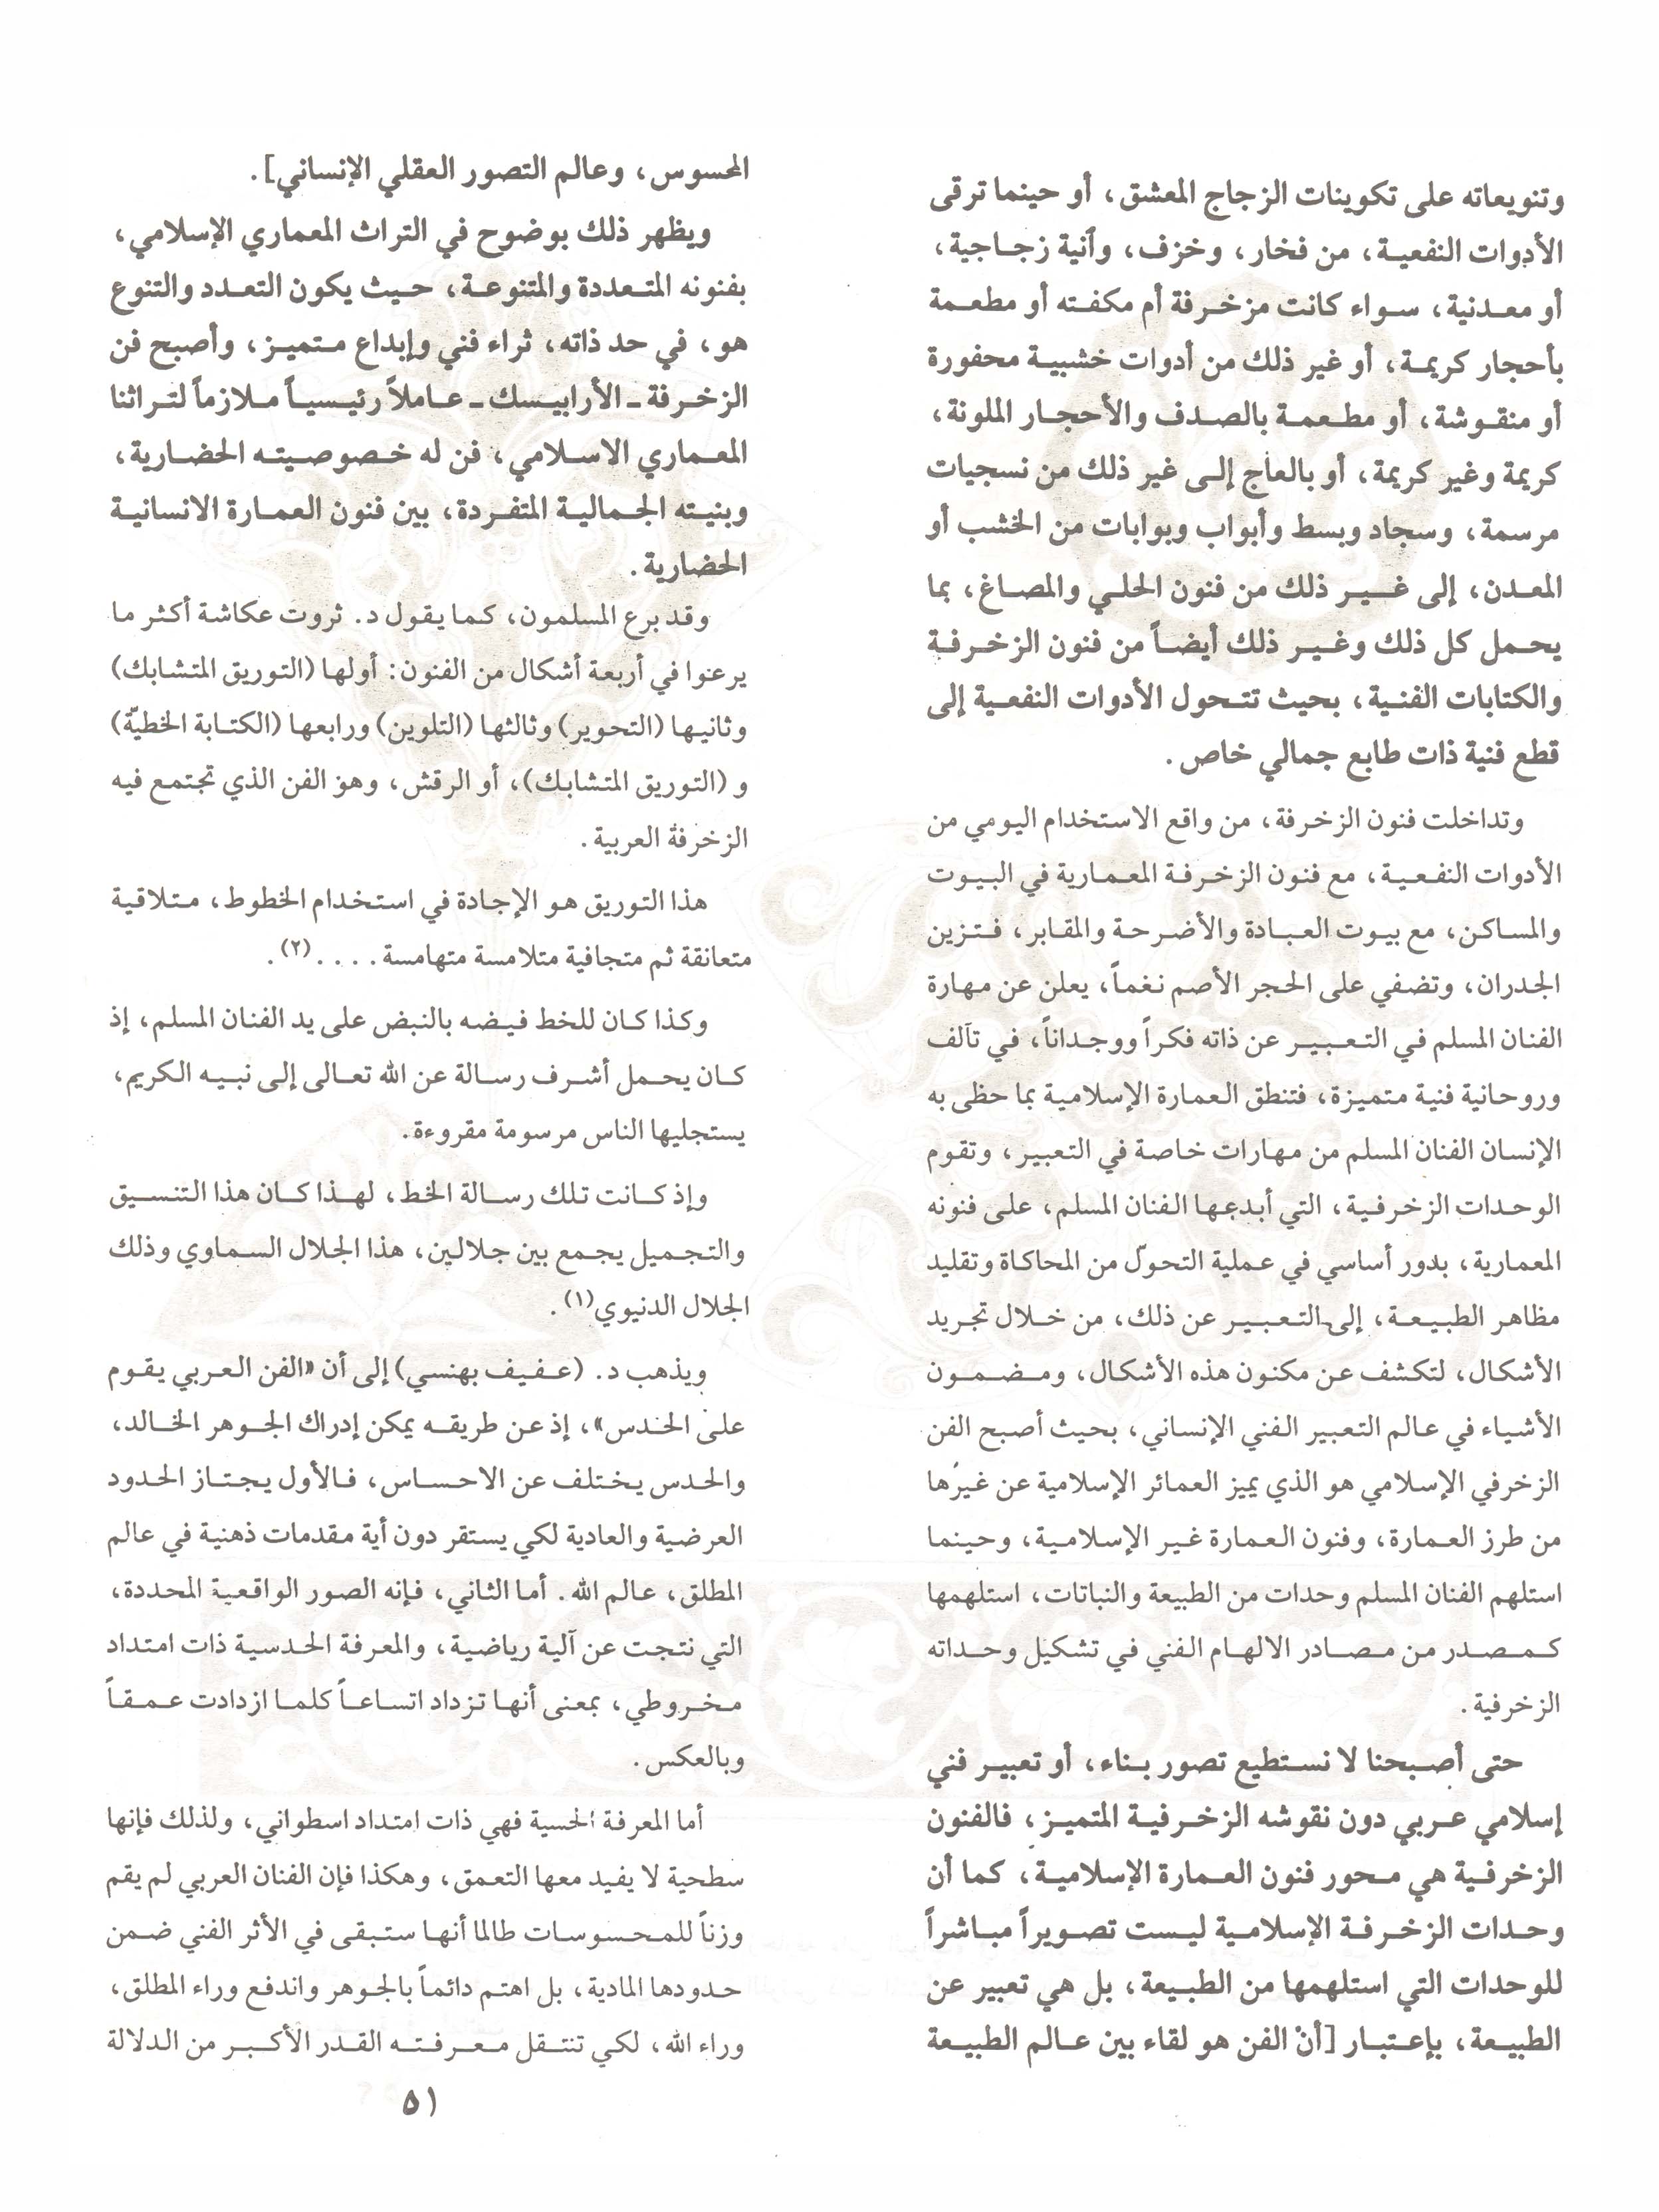 وتنويعاته على تكوينات الزجاج المعشق، أو حينما ترقى
الأدوات النفعية، من فخار، وخزف، وآنية زجاجية،
أو معدنية، سواء كانت مزخرفة أم مكفته أو مطعمة
بأحجار كريمة، أو غير ذلك من أدوات خشبية محفورة
أو منقوشة، أو مطعمة بالصدف والأحجار الملونة،
كريمة وغير كريمة، أو بالعاج إلى غير ذلك من نسجيات
مرسمة، وسجاد وبسط وأبواب وبوابات من الخشب أو
المعدن، إلى غير ذلك من فنون الحلي والمصاغ، بما
يحمل كل ذلك وغير ذلك أيضاً من فنون الزخرفة
والكتابات الفنية، بحيث تتحول الأدوات النفعية إلى
قطع فنية ذات طابع جمالي خاص.
وتداخلت فنون الزخرفة، من واقع الاستخدام اليومي من
الأدوات النفعية، مع فنون الزخرفة المعمارية في البيوت
والمساكن، مع بيوت العبادة والأضرحة والمقابر، فتزين
الجدران، وتضفي على الحجر الأصم نغماً، يعلن عن مهارة
الفنان المسلم في التعبير عن ذاته فكراً ووجداناً، في تآلف
وروحانية فنية متميزة، فتنطق العمارة الإسلامية بما حظى به
الإنسان الفنان المسلم من مهارات خاصة في التعبير، وتقوم
الوحدات الزخرفية، التي أبدعها الفنان المسلم، على فنونه
المعمارية، بدور أساسي في عملية التحوّل من المحاكاة وتقليد
مظاهر الطبيعة، إلى التعبير عن ذلك، من خلال تجريد
الأشكال، لتكشف عن مكنون هذه الأشكال، ومضمون
الأشياء في عالم التعبير الفني الإنساني، بحيث أصبح الفن
الزخرفي الإسلامي هو الذي يميز العمائر الإسلامية عن غيرها
من طرز العمارة، وفنون العمارة غير الإسلامية، وحينما
استلهم الفنان المسلم وحدات من الطبيعة والنباتات، استلهمها
كمصدر من مصادر الالهام الفني في تشكيل وحداته
الزخرفية.
حتى أصبحنا لا نستطيع تصور بناء، أو تعبير فني
إسلامي عربي دون نقوشه الزخرفية المتميز، فالفنون
الزخرفية هي محور فنون العمارة الإسلامية، كما أن
وحدات الزخرفة الإسلامية ليست تصويراً مباشراً
للوحدات التي استلهمها من الطبيعة، بل هي تعبير عن
الطبيعة، بإعتبار [أنْ الفن هو لقاء بين عالم الطبيعة
المحسوس، وعالم التصور العقلي الإنساني].
ويظهر ذلك بوضوح في التراث المعماري الإسلامي،
بفنونه المتعددة والمتنوعة، حيث يكون التعدد والتنوع
هو، في حد ذاته، ثراء فني وإبداع متميز، وأصبح فن
الزخرفة ـ الأرابيسك ـ عاملاً رئيسياً ملازماً لتراثنا
المعماري الاسلامي، فن له خصوصيته الحضارية،
وبنيته الجمالية المتفردة، بين فنون العمارة الانسانية
الحضارية.
وقد برع المسلمون، كما يقول د. ثروت عكاشة أكثر ما
يرعوا في أربعة أشكال من الفنون: أولها (التوريق المتشابك)
وثانيها (التحوير) وثالثها (التلوين) ورابعها (الكتابة الخطيّة)
و (التوريق المتشابك)، أو الرقش، وهو الفن الذي تجتمع فيه
الزخرفة العربية.
هذا التوريق هو الإجادة في استخدام الخطوط، متلاقية
متعانقة ثم متجافية متلامسة متهامسة . . . .(٢).
وكذا كان للخط فيضه بالنبض على يد الفنان المسلم، إذ
كان يحمل أشرف رسالة عن الله تعالى إلى نبيه الكريم،
يستجليها الناس مرسومة مقروءة.
وإذ كانت تلك رسالة الخط، لهذا كان هذا التنسيق
والتجميل يجمع بين جلالين، هذا الجلال السماوي وذلك
الجلال الدنيوي(١).
ويذهب د. (عفيف بهنسي) إلى أن «الفن العربي يقوم
على الحدس»، إذ عن طريقه يمكن إدراك الجوهر الخالد،
والحدس يختلف عن الاحساس، فالأول يجتاز الحدود
العرضية والعادية لكي يستقر دون أية مقدمات ذهنية في عالم
المطلق، عالم الله. أما الثاني، فإنه الصور الواقعية المحددة،
التي نتجت عن آلية رياضية، والمعرفة الحدسية ذات امتداد
مخروطي، بمعنى أنها تزداد اتساعاً كلما ازدادت عمقاً
وبالعكس.
أما المعرفة الحسية فهي ذات امتداد اسطواني، ولذلك فإنها
سطحية لا يفيد معها التعمق، وهكذا فإن الفنان العربي لم يقم
وزناً للمحسوسات طالما أنها ستبقى في الأثر الفني ضمن
حدودها المادية، بل اهتم دائماً بالجوهر واندفع وراء المطلق،
وراء الله، لكي تنتقل معرفته القدر الأكبر من الدلالة
٥١